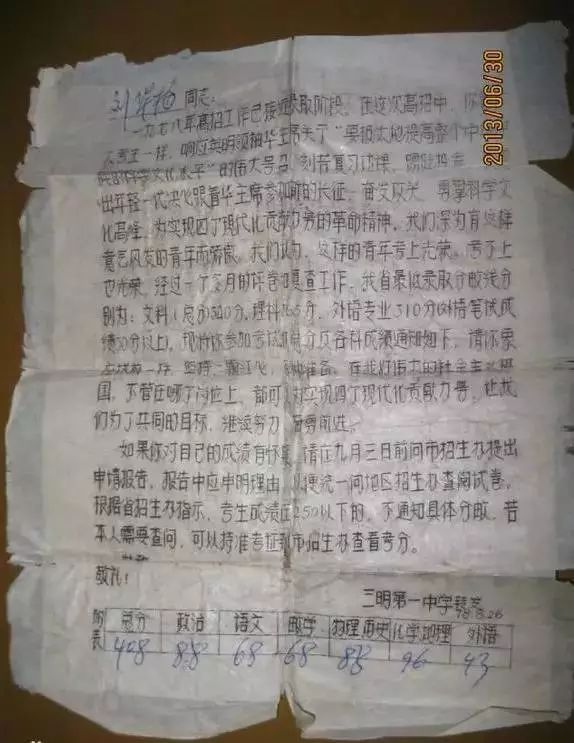 同志：
一九七八年高招工作已接近录取阶段。在这次高招中，你
一样，响应英明领袖华主席关于“要极大地提高整个中
科学文化水平”的伟大号召，刻苦复习功课，踊跃报考
出年轻一代决心跟着华主席参加新的长征，奋发攻关，勇攀科学文
化高峰，为实现四个现代化贡献力量的革命精神。我们深为有这样
意气风发的青年而骄傲。我们认为，这样的青年考上光荣，考不上
也光荣。经过一个多月的评卷和复查工作，我省最低录取分数线分
别为：文科（总分）340分，理科365分，外语专业310分（外语笔试成
绩50分以上）。现将你参加考试的总分及各科成绩通知如下，请你象
一样，坚持一颗红心，准备，在我们伟大的社会主义祖
国，不管在哪个岗位上，都可为实现四个现代化贡献力量，让我
们为了共同的目标，继续努力，奋勇前进。
如果你对自己的成绩有怀疑，请在九月三日前向市招生办提出
申请报告，报告中应申明理由，以便统一向地区招生办查阅试卷。
根据省招生办指示，考生成绩在250以下的，不通知具体分数，若
本人需要查问，可以持准考证到市招生办查看考分。
敬礼！
三明第一中学
78.8.26
附表 总分 政治 语文 数学 物理历史 化学地理 外语
408 88 68 68 88 96 43
2013/06/30